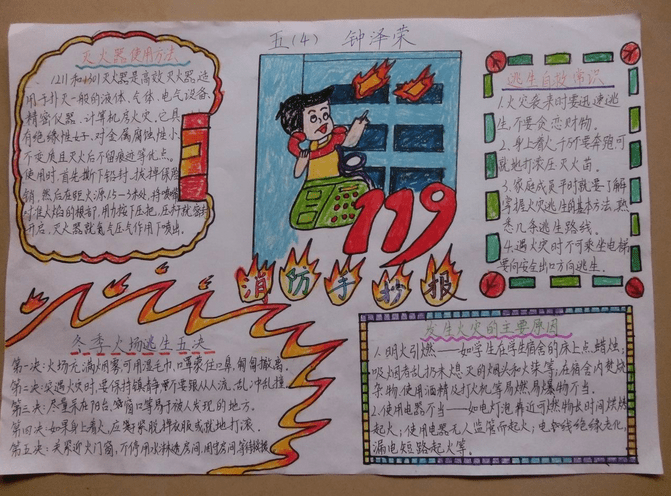 五(4) 钟泽荣
灭火器使用方法
灭火器是高效灭火器,适
用于扑灭一般的液体、气体、电气设备、
精密仪器、计算机房火灾。它具
有绝缘性好,对金属腐蚀性小、
不变质且灭火后不留痕迹等优点。
使用时,首先撕下铅封,拔掉保险
销,然后在距火源1.5-3米处,将喷嘴
对准火焰的根部,用力按下压把,压杆就
开启,灭火器就氮气压气作用下喷出。
119
消防手抄报
逃生自救常识
1.火灾袭来时要迅速逃
生,不要贪恋财物。
2.身上着火,千万不要奔跑可
就地打滚压灭火苗。
3.家庭成员平时就要了解
掌握火灾逃生的基本方法,熟
悉几条逃生路线。
4.遇火灾时不可乘坐电梯
要向安全出口方向逃生。
冬季火场逃生五决
第一决:火场无满烟雾,可用湿毛巾、口罩蒙住口鼻,匍匐撤离。
第二决:突遇火灾时,要保持镇静,不要跟从人流、乱冲乱撞。
第三决:尽量呆在阳台,窗口等易于被人发现的地方。
第四决:如果身上着火,应赶紧脱掉衣服或就地打滚。
第五决:关紧迎火门窗,不停用水淋透房间,固守房间等待救援。
发生火灾的主要原因
1.明火引燃——如学生在学生宿舍的床上点蜡烛;
吸烟者乱扔未熄灭的烟头和火柴等,在宿舍内焚烧
杂物,使用酒精及打火机等易燃易爆物不当。
2.使用电器不当——如电灯泡靠近可燃物长时间烘烤
起火;使用电器无人监管而起火;电线绝缘老化,
漏电短路起火等。